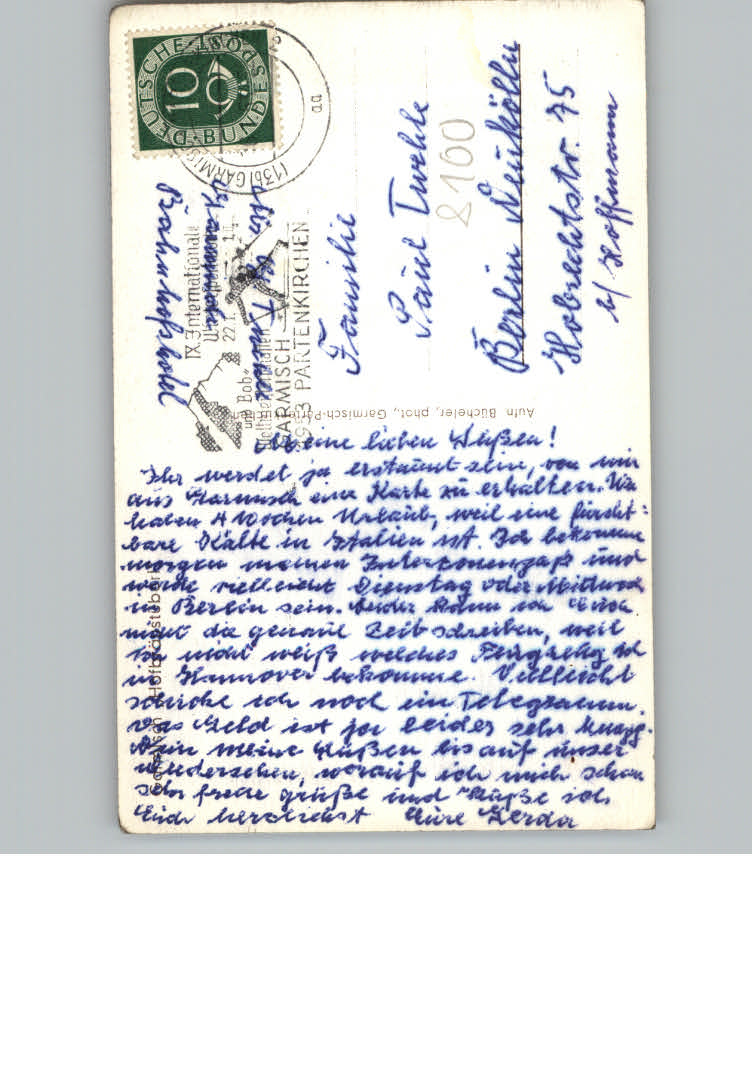 DEUTSCHE BUNDESPOST
10
(13b) GARMISCH
aa
IX. Internationale
22.1. 1.2.
und Bob"
GARMISCH
1953 PARTENKIRCHEN
Bahnhofshotel
Familie
Paul Twehle
8100
Berlin Neukölln
Hobrechtstr. 75
b/ Hoffmann
Aufn. Bücheler, phot., Garmisch-Partenkirchen
Meine lieben Süßen!
Ihr werdet ja erstaunt sein, von mir
aus Garmisch eine Karte zu erhalten. Wir
haben 4 Wochen Urlaub, weil eine furcht-
bare Kälte in Italien ist. Ich bekomme
morgen meinen Interzonenpaß und
werde vielleicht Dienstag oder Mittwoch
in Berlin sein. Leider kann ich Euch
nicht die genaue Zeit schreiben, weil
ich nicht weiß welches Flugzeug ich
in Hannover bekomme. Vielleicht
schicke ich noch ein Telegramm.
Das Geld ist ja leider sehr knapp.
meine Süßen bis auf unser
Wiedersehen, worauf ich mich schon
sehr freue grüße und küße ich
Euch herzlichst Eure Gerda